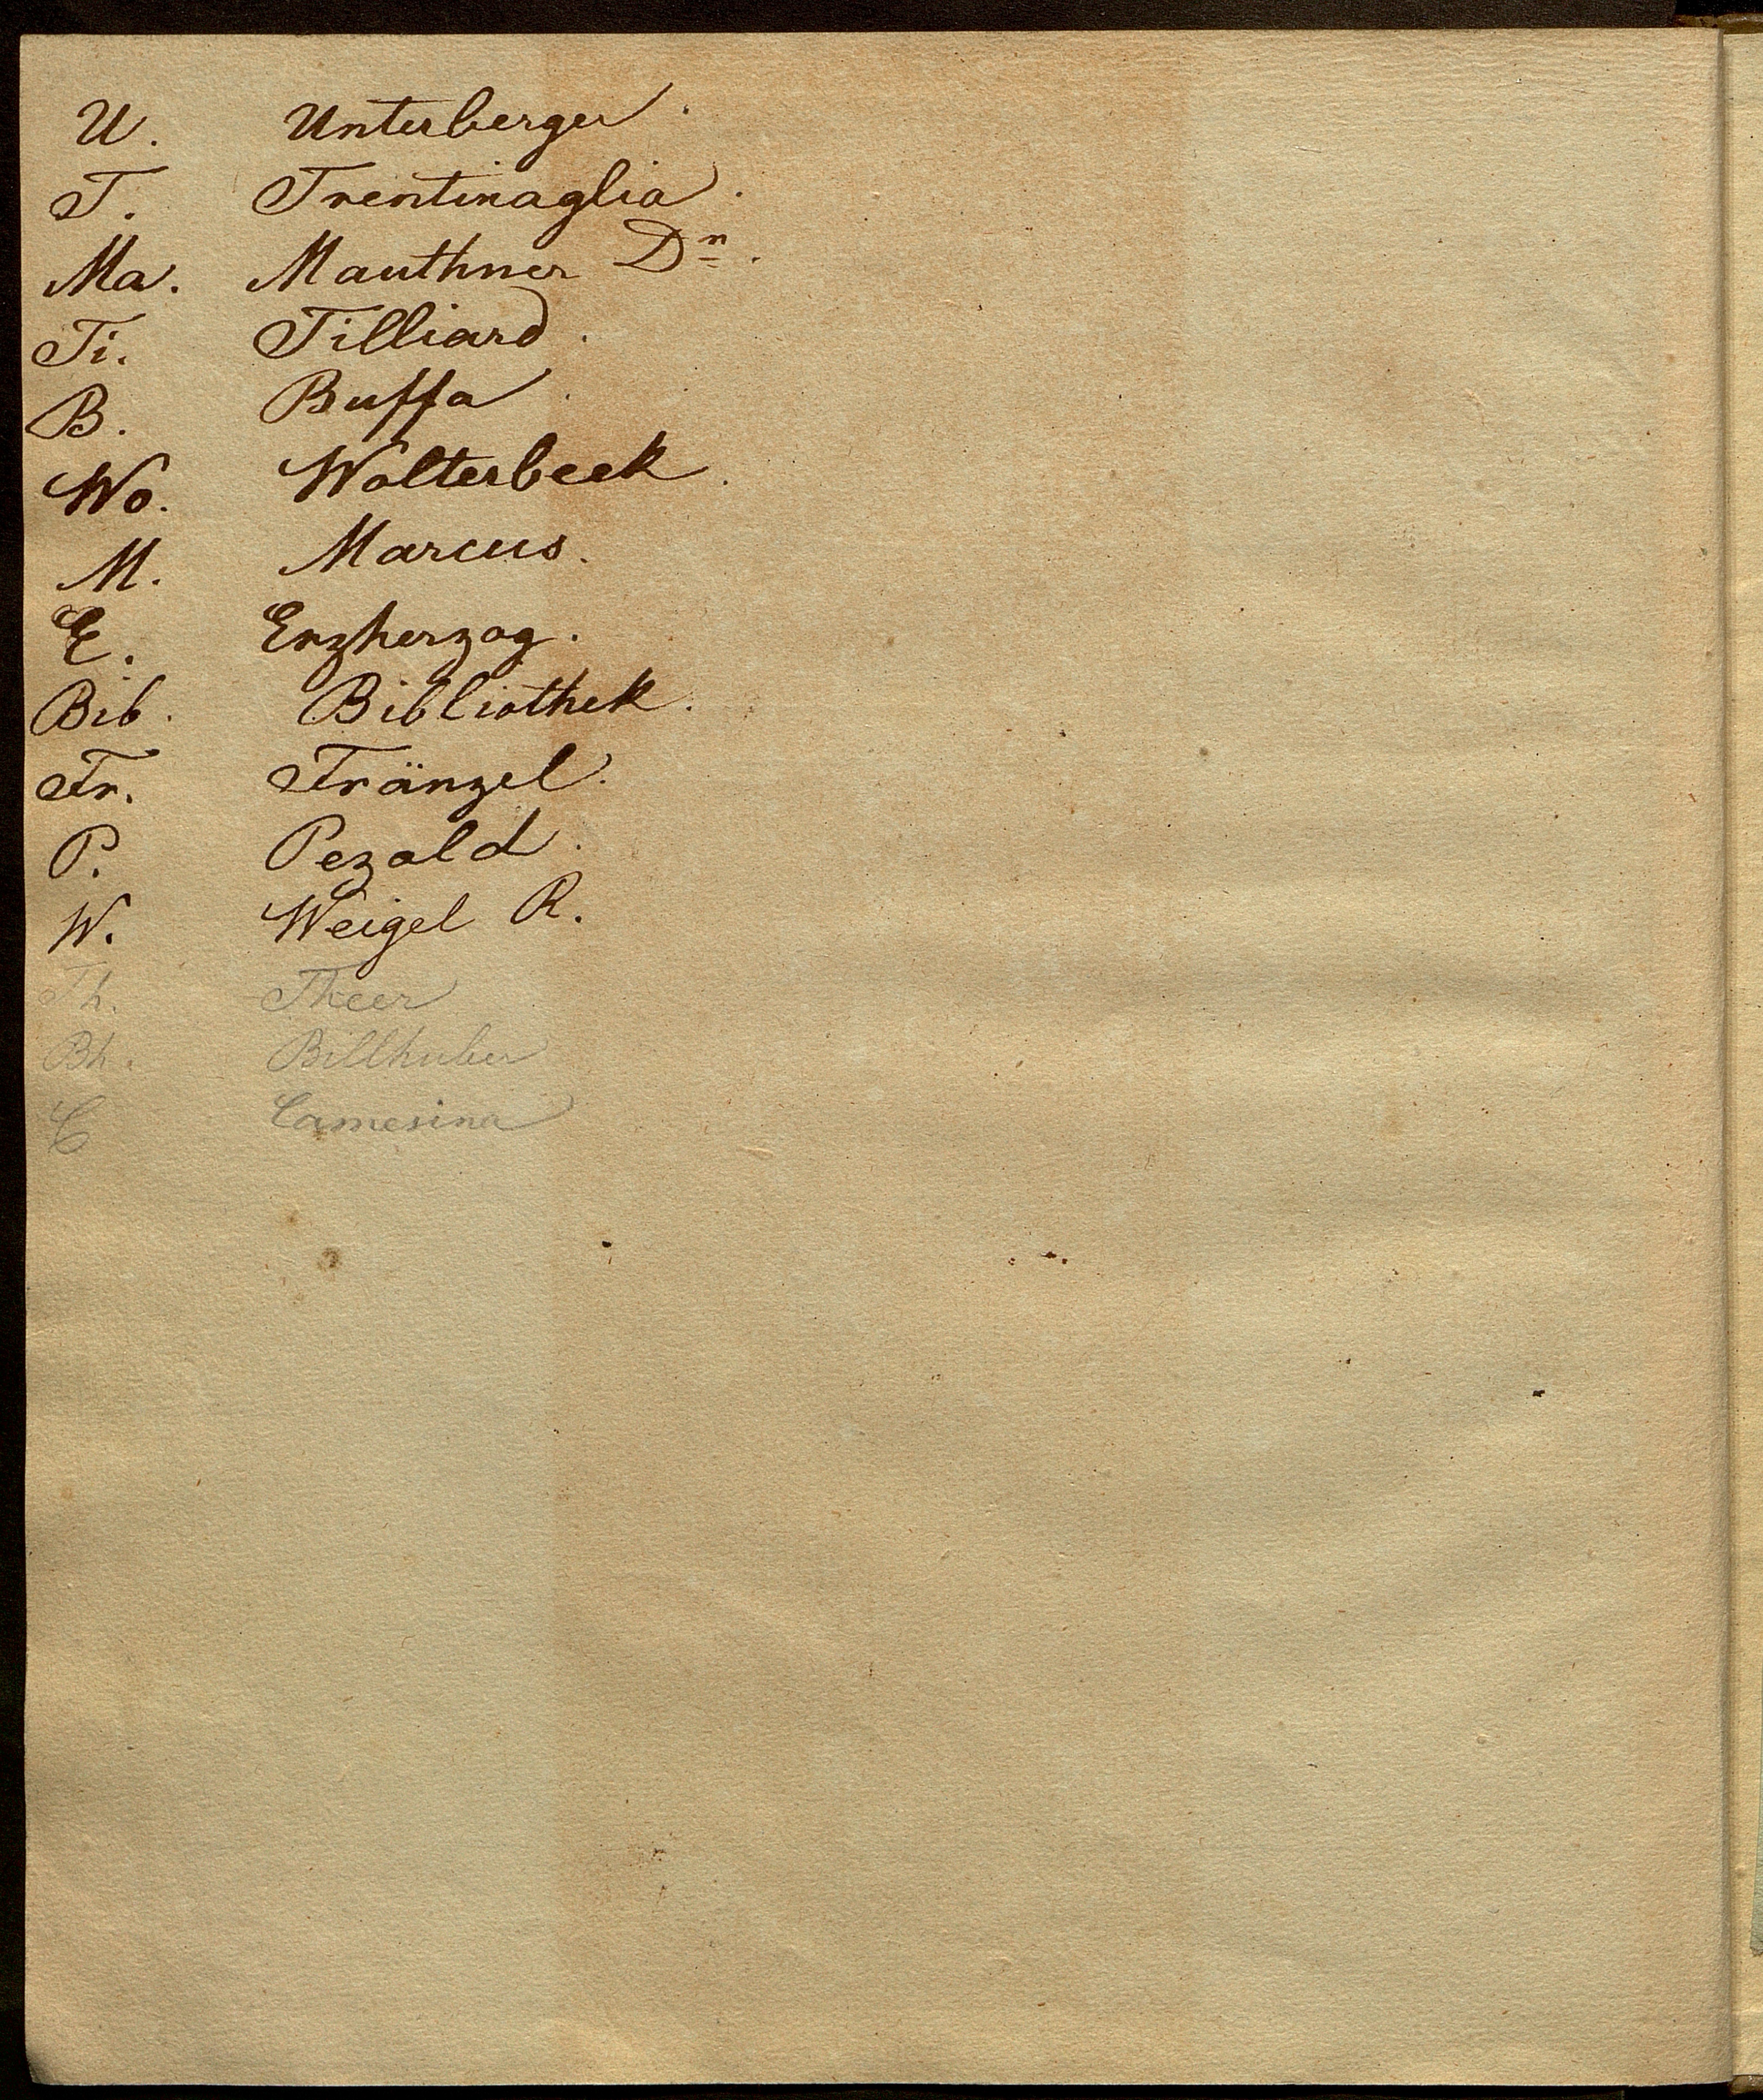 U. Unterberger.
T. Trentinaglia.
Ma. Mauthner Dr.
Ti. Tilliard.
B. Buffa.
Wo. Wolterbeek.
M. Marcus.
E. Erzherzog.
Bib. Bibliothek.
Fr. Fränzel.
P. Pezold.
W. Weigel R.
Th. Theer
Bh. Billhuber
C Camesina